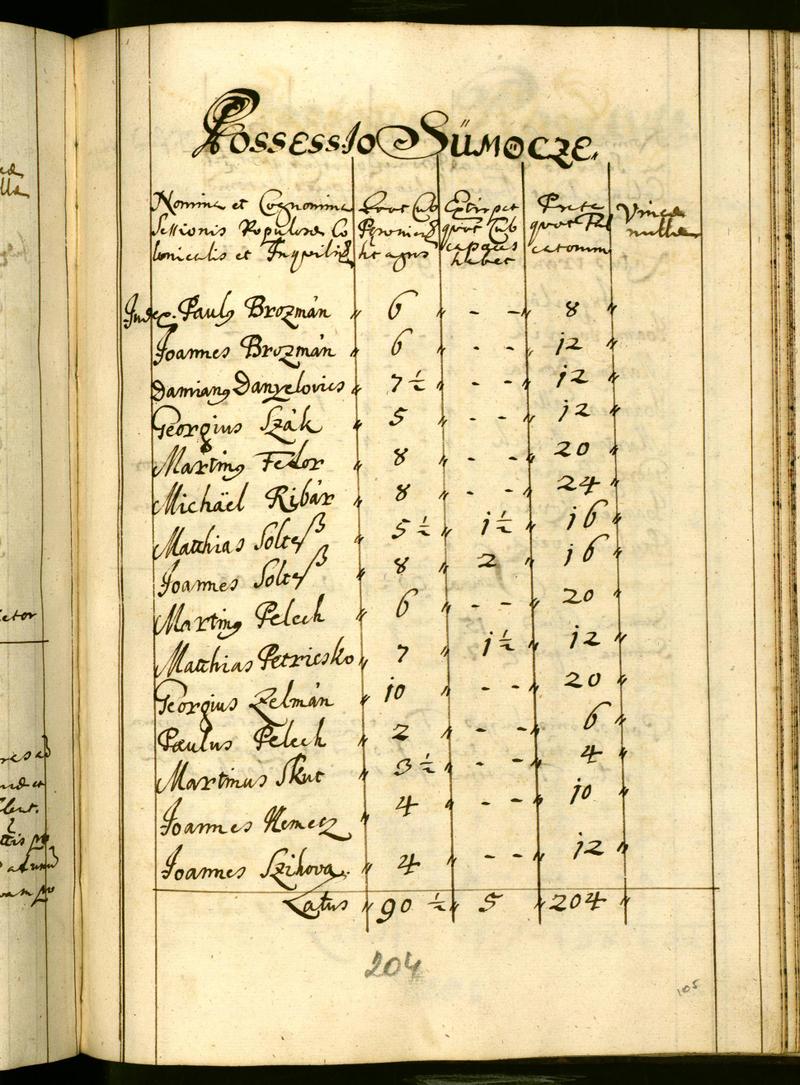 Possessio Sümocze.
Nomina et Cognomina
Sessionis Populorum Co
lonicalis et Inquilin
Quot Cub
agros
Extirpat
quot Cub
capaces
habet
Prata
quot Fal
catorum
Vinea
nulla
Judex. Pauly Brozmán " 6 " - - " 8 "
Joannes Brozmán " 6 " - - " 12 "
Damiany Danyelovics " 7 ½ " - - " 12 "
Georgius Szák " 5 " - - " 12 "
Martiny Fedor " 8 " - - " 20 "
Michäel Ribár " 8 " - - " 24 "
Matthias Solteß " 5 ½ " 1 ½ " 16 "
Joannes Solteß " 8 " 2 " 16 "
Martiny Pelech " 6 " - - " 20 "
Matthias Petricsko " 7 " 1 ½ " 12 "
Georgius Zelmán " 10 " - - " 20 "
Paulus Pelech " 2 " - - " 6 "
Martinus Skut " 3 ½ " - - " 4 "
Joannes Nemetz " 4 " - - " 10 "
Joannes Szihova " 4 " - - " 12 "
Latus " 90 ½ " 5 " 204 "
204
105